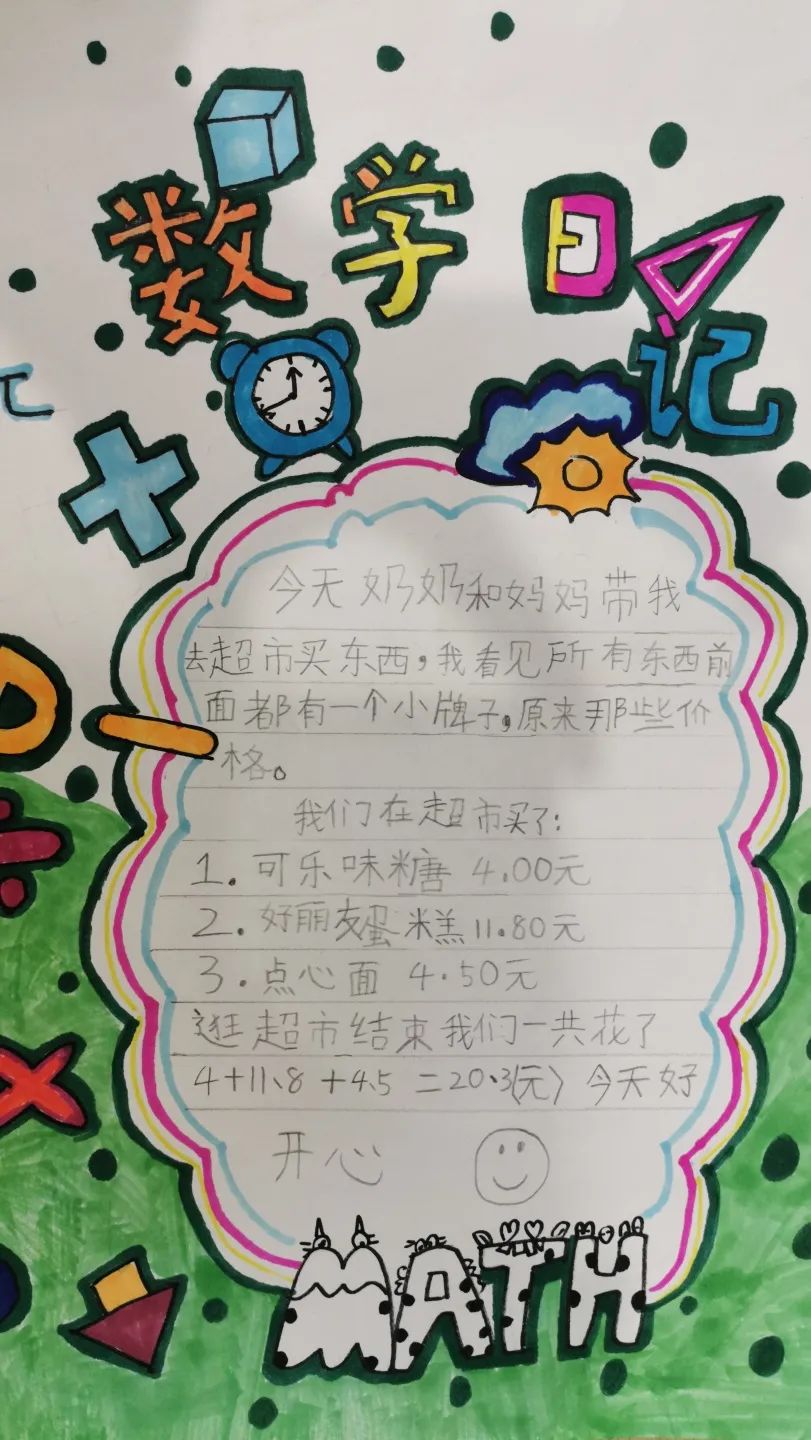 数学日记
今天奶奶和妈妈带我
去超市买东西，我看见所有东西前
面都有一个小牌子，原来那些价
格。
我们在超市买了：
1.可乐味糖 4.00元
2.好丽友蛋糕11.80元
3.点心面 4.50元
逛超市结束我们一共花了
4+11.8+4.5=20.3(元) 今天好
开心
MATH